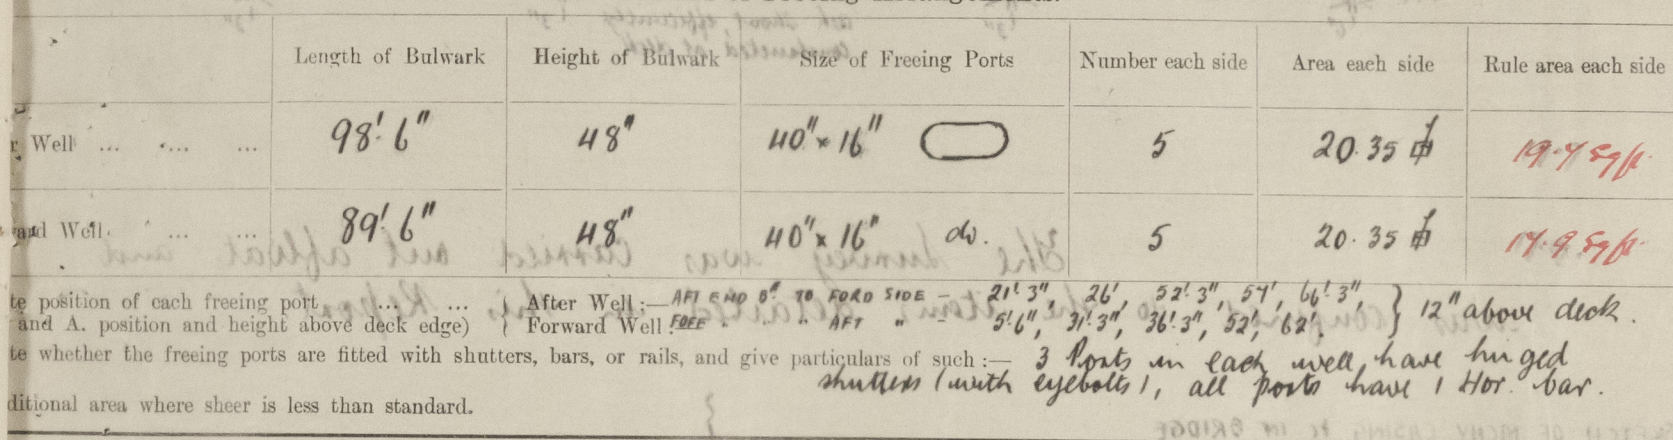 Length of Bulwark Height of Bulwark Size of Freeing Ports Number each side Area each side Rule area each side
r Well ... ... ... 98'. 6" 48" 40" x 16" 5 20.35 19.7 Sq ft.
ard Well ... ... 89'. 6" 48" 40" x 16" do. 5 20.35 17.9 Sq ft.
te position of each freeing port ... ... After Well :— AFT END OF TO FORD SIDE – 21'. 3", 26', 52'. 3", 57', 66'. 3", } 12" above deck.
and A. position and height above deck edge) Forward Well FORE " " " AFT " - 5'. 6", 31'. 3", 36'. 3", 52', 62'.
te whether the freeing ports are fitted with shutters, bars, or rails, and give particulars of such :— 3 Ports in each well have hinged
shutters (with eyebolts), all ports have 1 Hor. bar.
ditional area where sheer is less than standard.